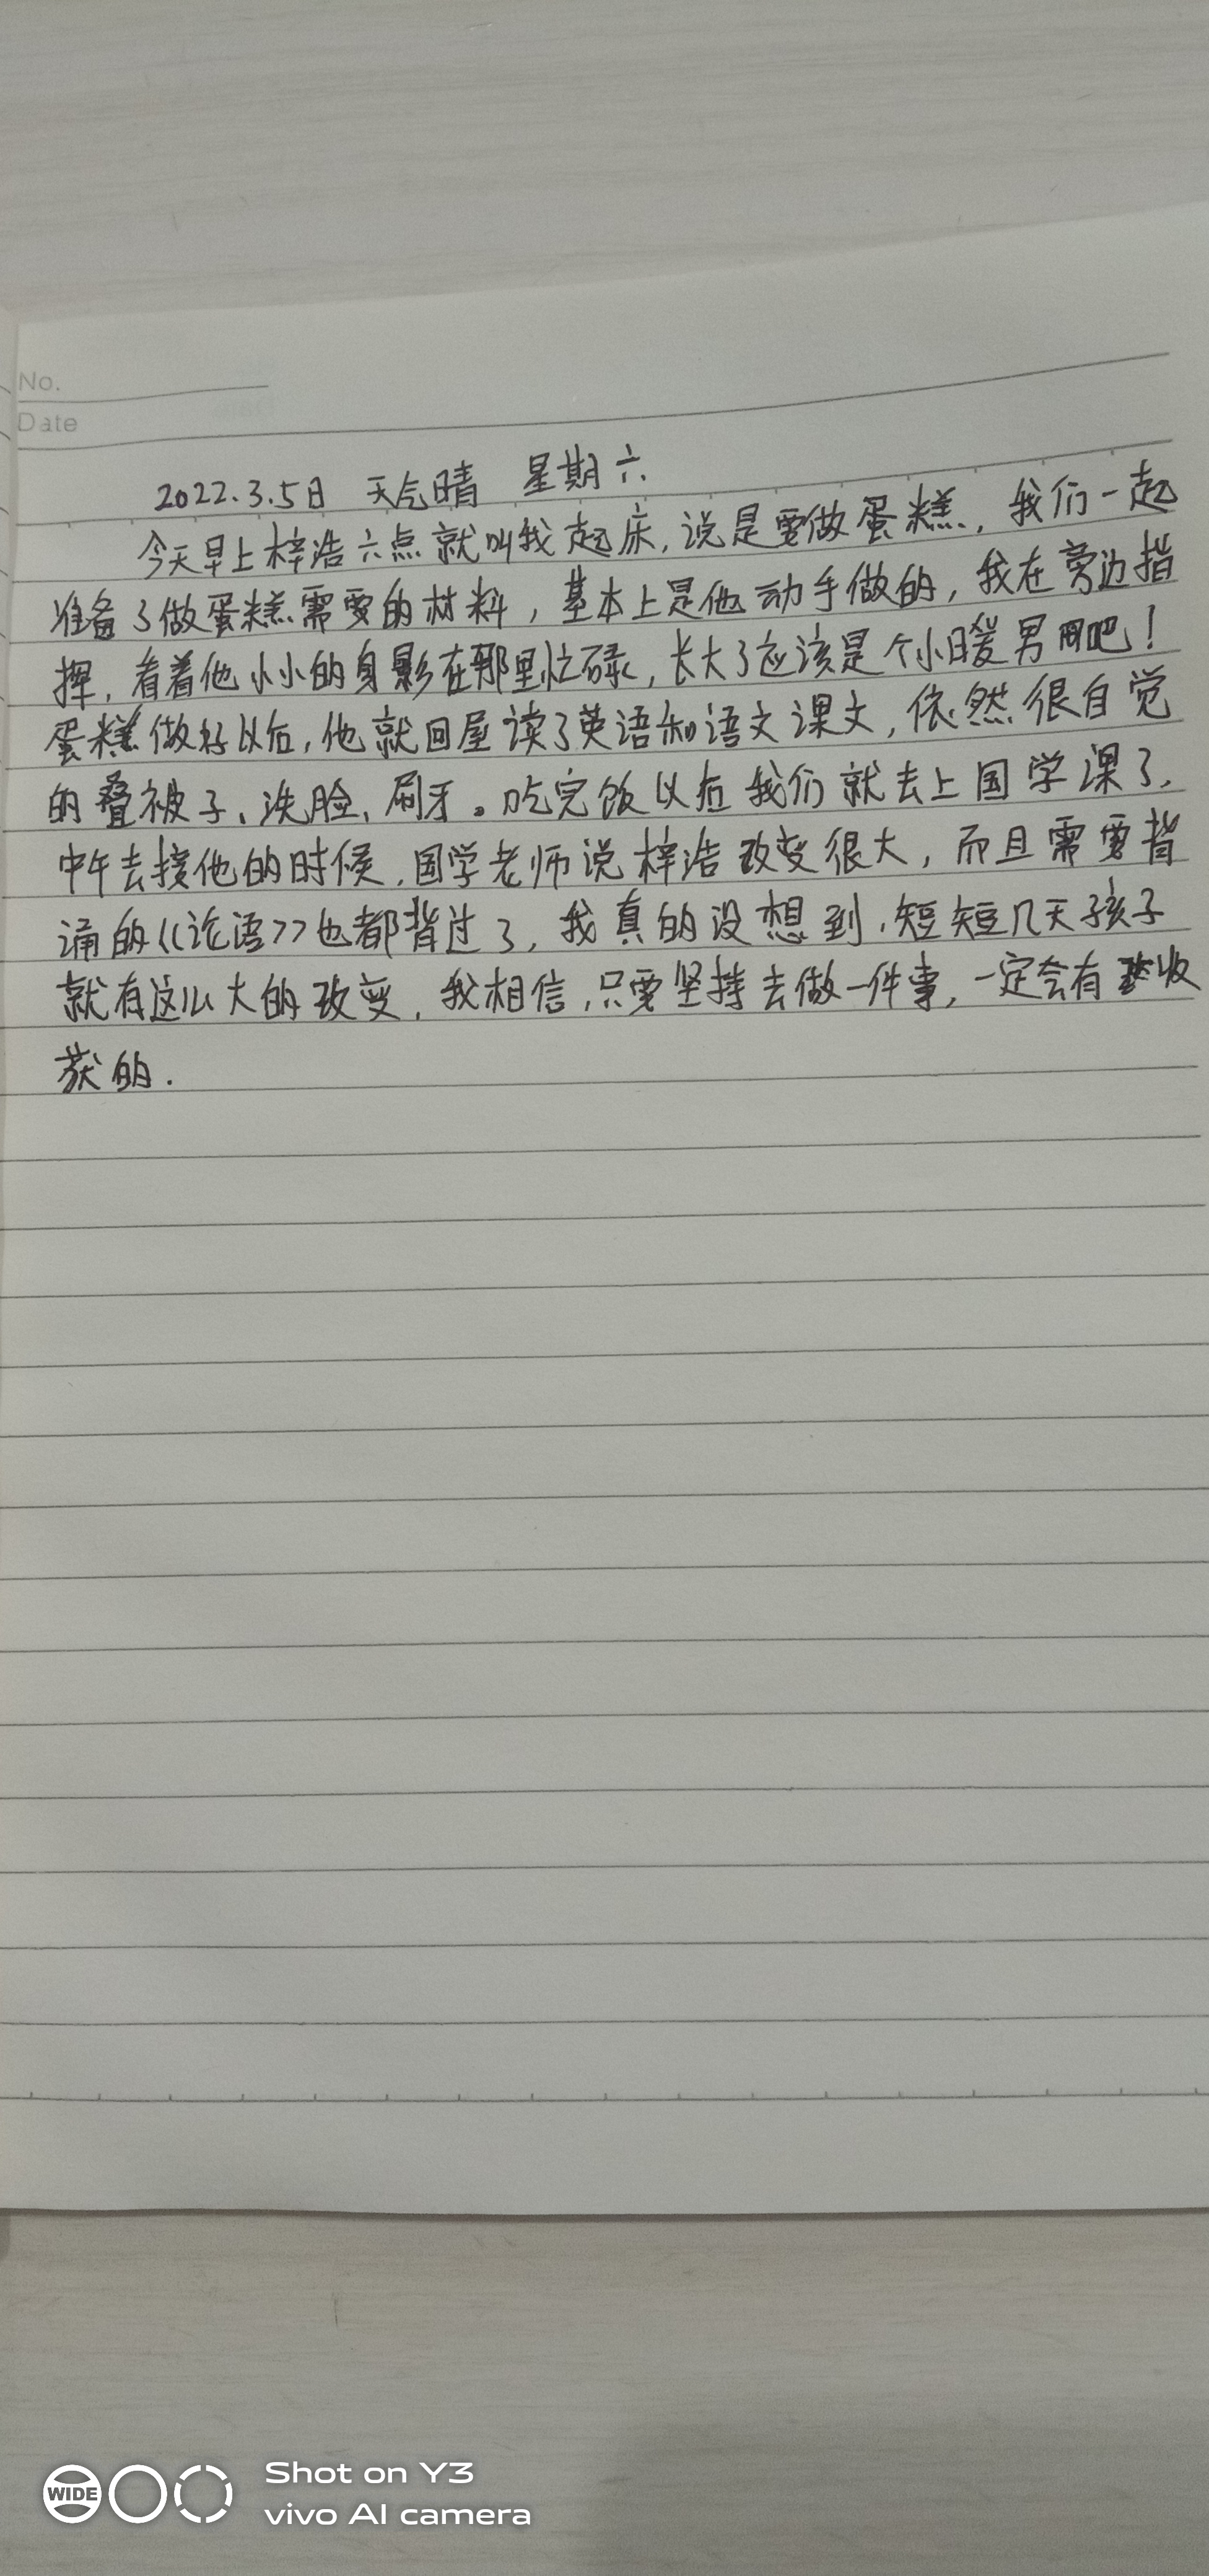 No.
Date
2022.3.5日 天气晴 星期六
今天早上梓浩六点就叫我起床,说是要做蛋糕,我们一起
准备了做蛋糕需要的材料,基本上是他动手做的,我在旁边指
挥,看着他小小的身影在那里忙碌,长大了应该是个小暖男吧!
蛋糕做好以后,他就回屋读了英语和语文课文,依然很自觉
的叠被子、洗脸、刷牙。吃完饭以后我们就去上国学课了.
中午去接他的时候,国学老师说梓浩改变很大,而且需要背
诵的《论语》也都背过了,我真的没想到,短短几天孩子
就有这么大的改变,我相信,只要坚持去做一件事,一定会有收
获的.
WIDE
Shot on Y3
vivo AI camera